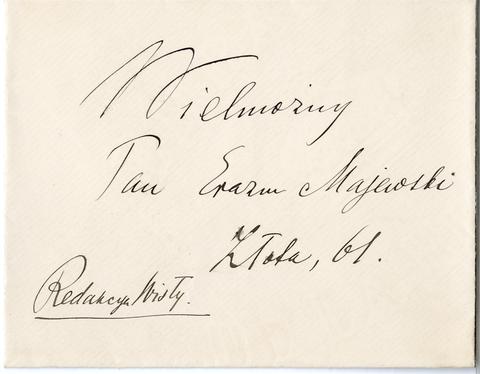 Wielmożny
Pan Erazm Majewski
Złota, 61.
Redakcya Wisły.